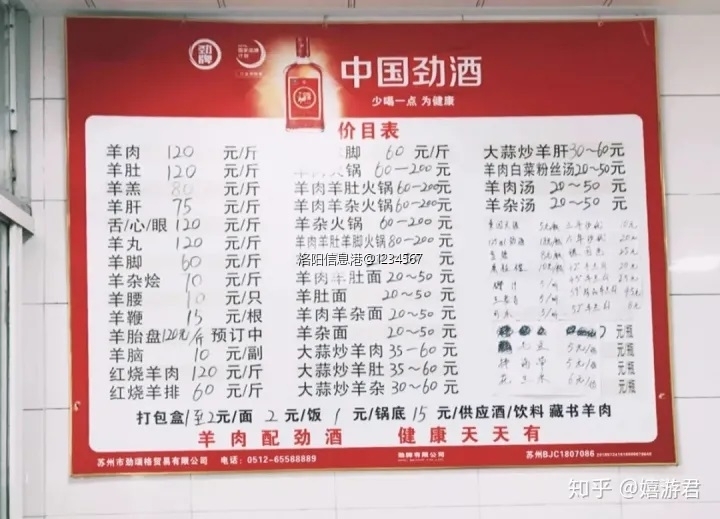 劲牌
中国劲酒
少喝一点 为健康
价目表
羊肉 120 元/斤
羊肚 120 元/斤
羊羔 80 元/斤
羊肝 75 元/斤
舌/心/眼 120 元/斤
羊丸 120 元/斤
羊脚 60 元/斤
羊杂烩 70 元/斤
羊腰 10 元/只
羊鞭 15 元/根
羊胎盘 120元/斤 预订中
羊脑 10 元/副
红烧羊肉 120 元/斤
红烧羊排 60 元/斤
脚 60 元/斤
羊肉火锅 60-200元
羊肉羊肚火锅 60-200元
羊肉羊杂火锅 60-200元
羊杂火锅 60-200元
羊肉羊肚羊脚火锅 80-200元
羊肉羊肚面 20~50元
羊肚面 20~50元
羊肉羊杂面 20~50元
羊杂面 20~50元
大蒜炒羊肉 35-60元
大蒜炒羊肚 35-60元
大蒜炒羊杂 30~60元
大蒜炒羊肝 30~60元
羊肉白菜粉丝汤 20~50元
羊肉汤 20~50元
羊杂汤 20~50元
元/瓶
元/瓶
元/瓶
元/瓶
打包盒 1至2元/面 2元/饭 1元/锅底 15元/供应酒/饮料 藏书羊肉
羊肉配劲酒 健康天天有
苏州市劲瑞格贸易有限公司 电话：0512-65588889
劲牌有限公司
苏州BJC1807086
洛阳信息港@1234567
知乎 @嬉游君